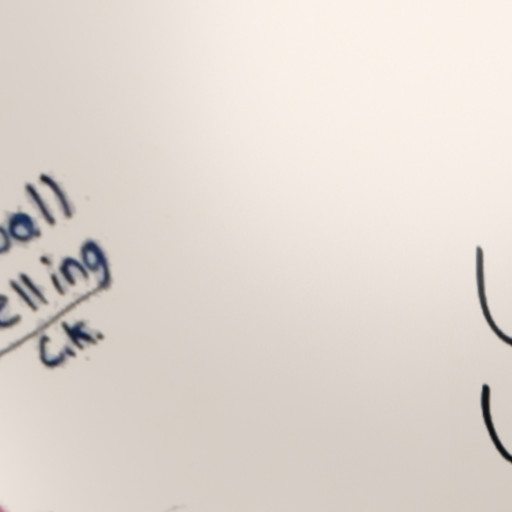 ball
elling
C.K.